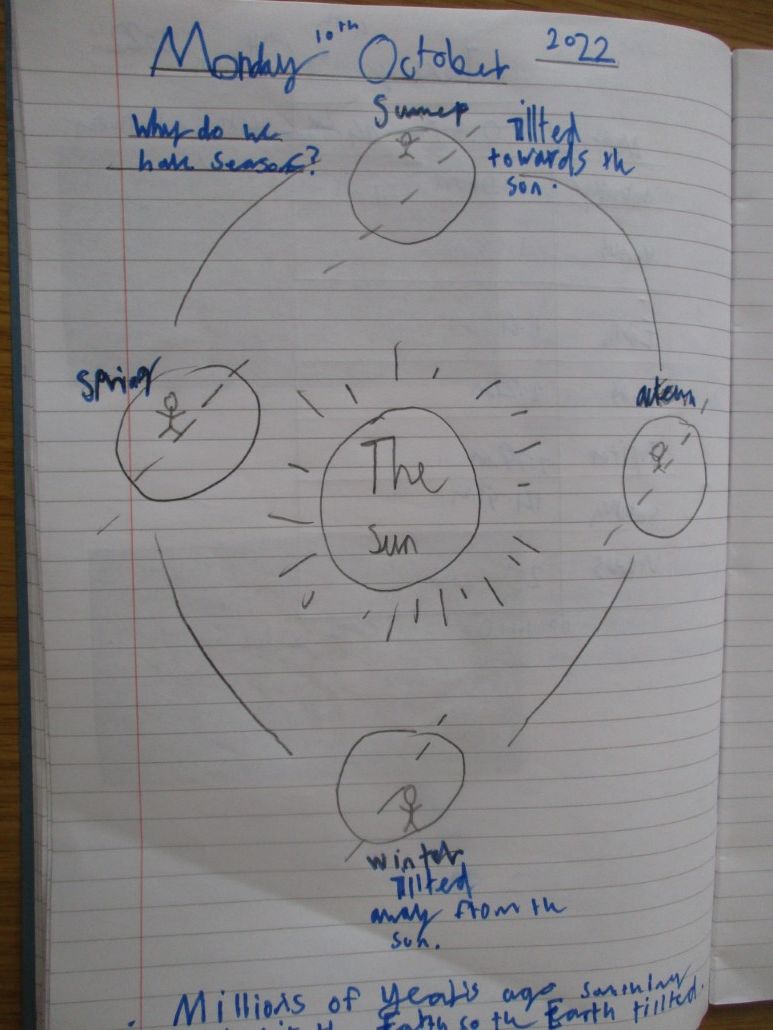 Monday 10th October 2022
Why do we
have season?
Summer
Tilted
towards th
son.
Spring
autemn
The
Sun
winter
Tilted
away from th
sun.
Millions of years ago
Earth so th Earth tillted.